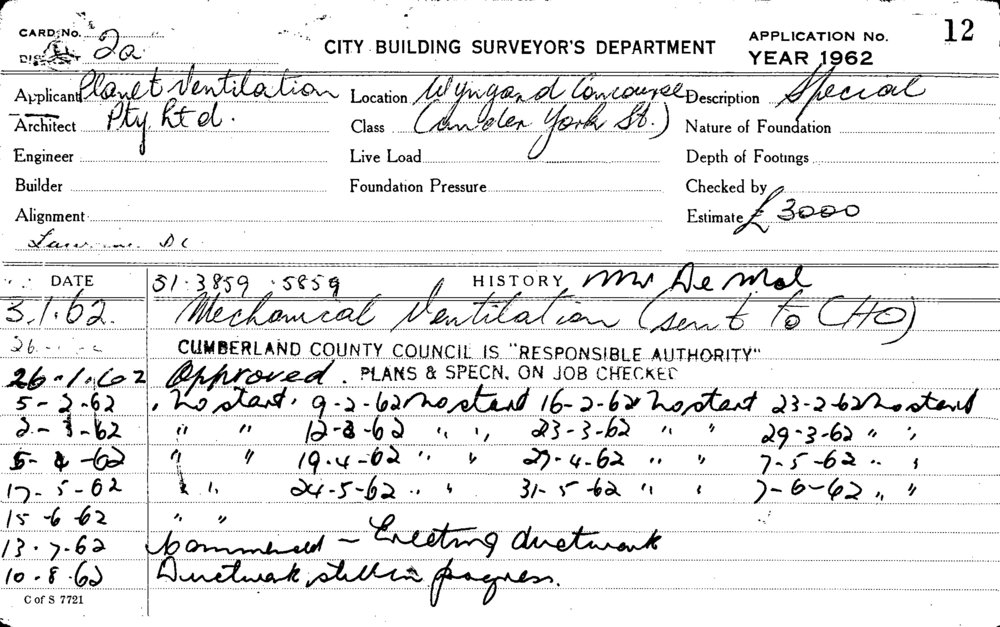 CARD No. 2a
CITY BUILDING SURVEYOR'S DEPARTMENT
APPLICATION No. 12
YEAR 1962
Applicant Planet Ventilation Location Wynyard Concourse Description Special
Architect Pty Ltd. Class (under York St.) Nature of Foundation
Engineer Live Load Depth of Footings
Builder Foundation Pressure Checked by
Alignment Estimate £3000
DATE 51·3859 ·5859 HISTORY Mr De Mol
3.1.62. Mechanical Ventilation (sent to CHO)
CUMBERLAND COUNTY COUNCIL IS "RESPONSIBLE AUTHORITY"
26-1.62 Approved. PLANS & SPECN. ON JOB CHECKED
5-2-62 No start. 9-2-62 No start 16-2-62 No start 23-2-62 No start
2-3-62 " " 12-3-62 " " 23-3-62 " " 29-3-62 " "
5-4-62 " " 19.4-62 " " 27-4.62 " " 7-5-62 " "
17-5-62 " " 24-5-62 " " 31-5-62 " " 7-6-62 " "
15-6-62 " "
13.7.62 Commenced – Erecting ductwork
10.8.62 Ductwork still in progress.
C of S 7721